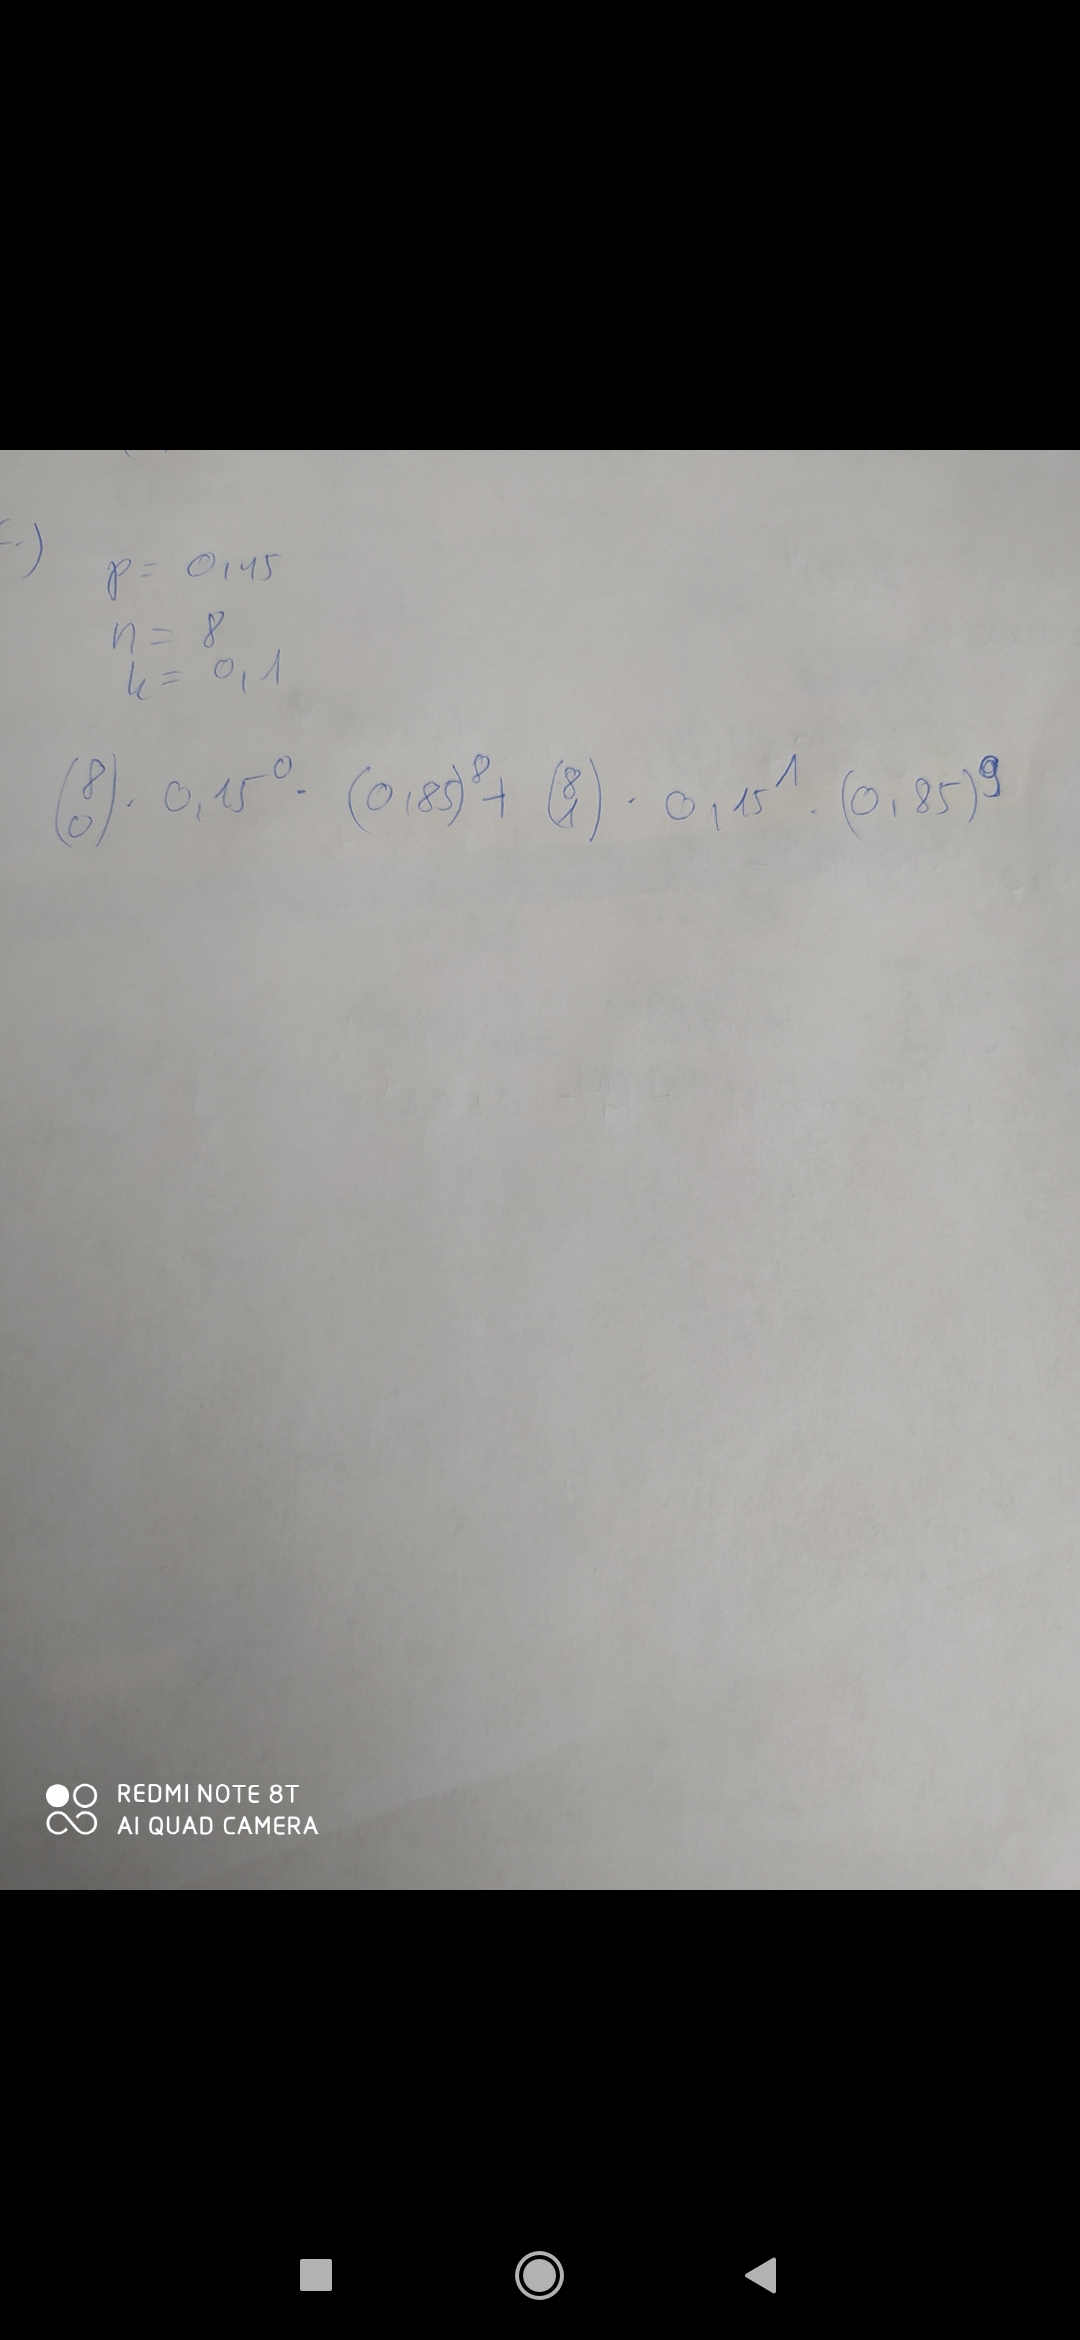 c)
p = 0,15
n = 8
k = 0,1
(8 0) · 0,15^0 · (0,85)^8 + (8 1) · 0,15^1 · (0,85)^9
REDMI NOTE 8T
AI QUAD CAMERA